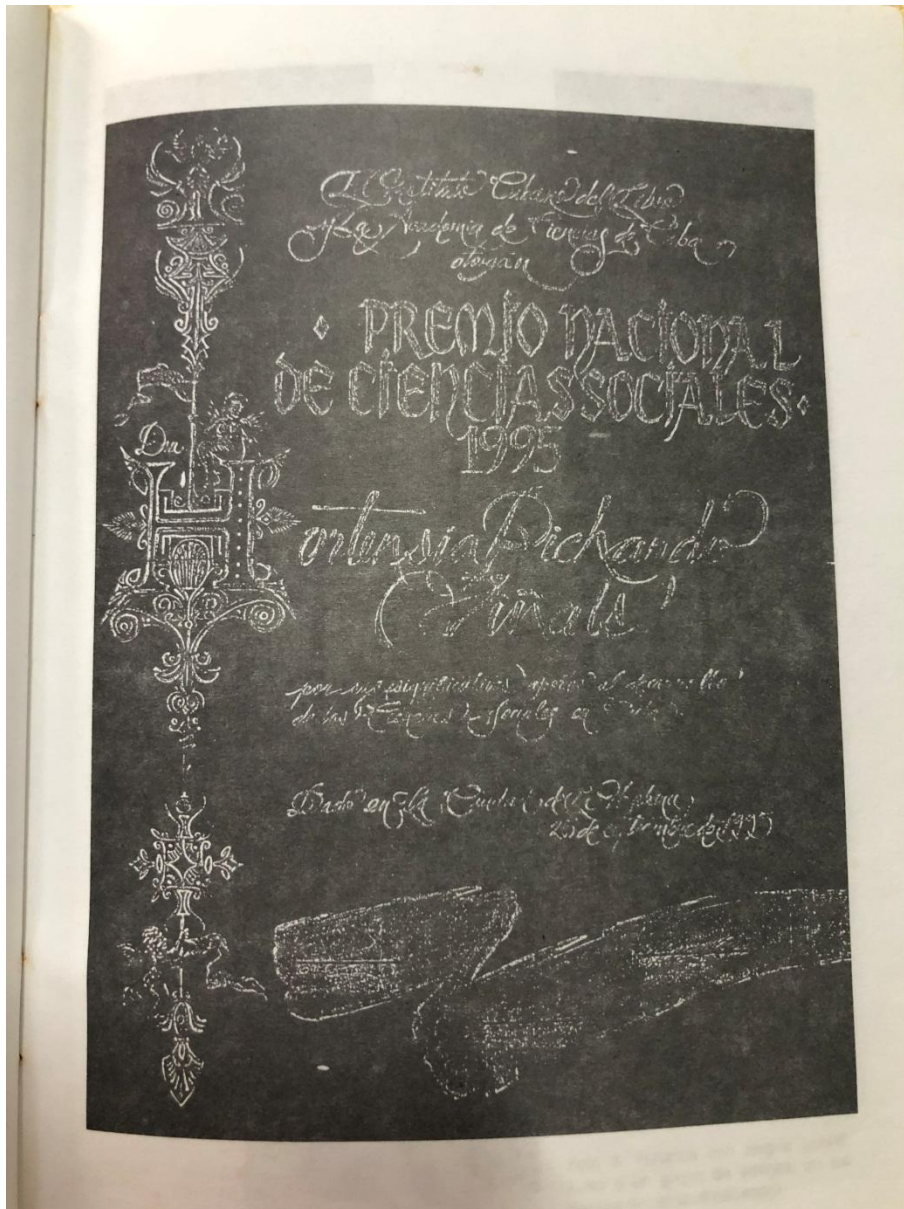 El Instituto Cubano del Libro
y La Academia de Ciencias de Cuba
otorgan
PREMIO NACIONAL
DE CIENCIAS SOCIALES
1995
Dra. Hortensia Pichardo
Viñals
por sus significativos aportes al desarrollo
de las Ciencias Sociales en Cuba
Dado en la Ciudad de La Habana,
de 1995